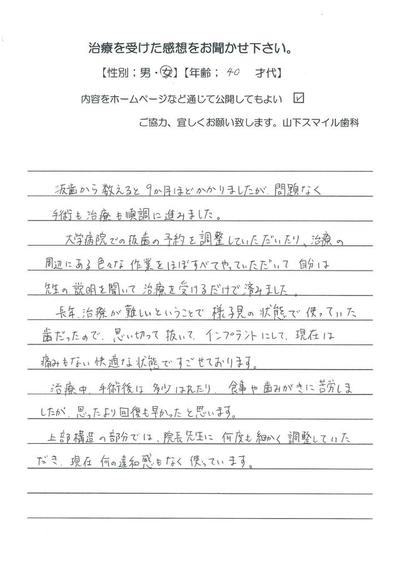 治療を受けた感想をお聞かせ下さい。
【性別:男・女】【年齢: 40 才代】
内容をホームページなど通じて公開してもよい ☑
ご協力、宜しくお願い致します。山下スマイル歯科
抜歯から数えると9か月ほどかかりましたが、問題なく
手術も治療も順調に進みました。
大学病院での抜歯の予約を調整していただいたり、治療の
周辺にある色々な作業をほぼすべてやっていただいて自分は
先生の説明を聞いて治療を受けるだけで済みました。
長年、治療が難しいということで様子見の状態で使っていた
歯だったので、思い切って抜いて、インプラントにして、現在は
痛みもない快適な状態ですごせております。
治療中、手術後は多少はれたり、食事や歯みがきに苦労しま
したが、思ったより回復も早かったと思います。
上部構造の部分では、院長先生に何度も細かく調整していた
だき、現在何の違和感もなく使っています。